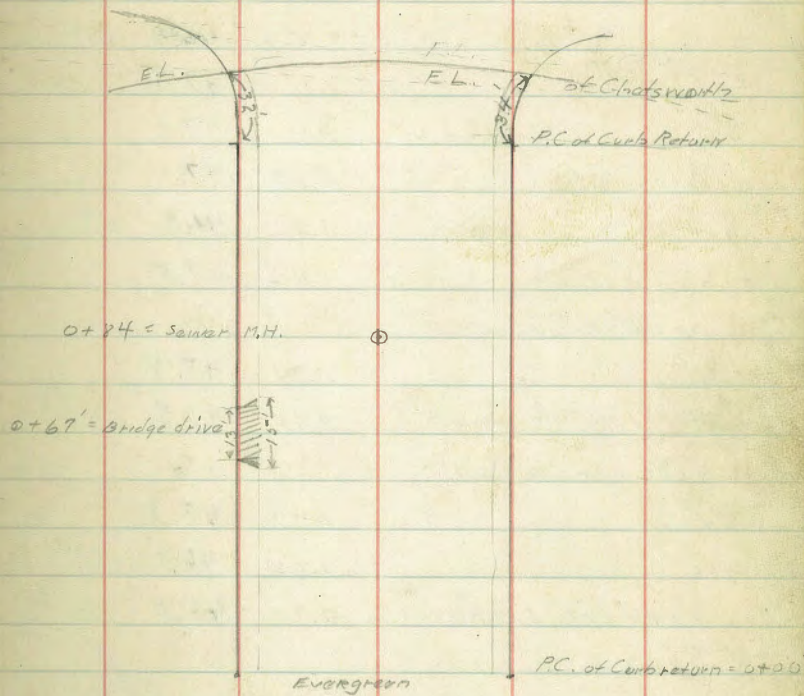 E.L.
E.L.
E.L.
of Chatsworth
P.C of Curb Return
0+84 = Sewer M.H.
0+67' = Bridge drive
13'
15'
P.C. of Curb return = 0+00
Evergreen